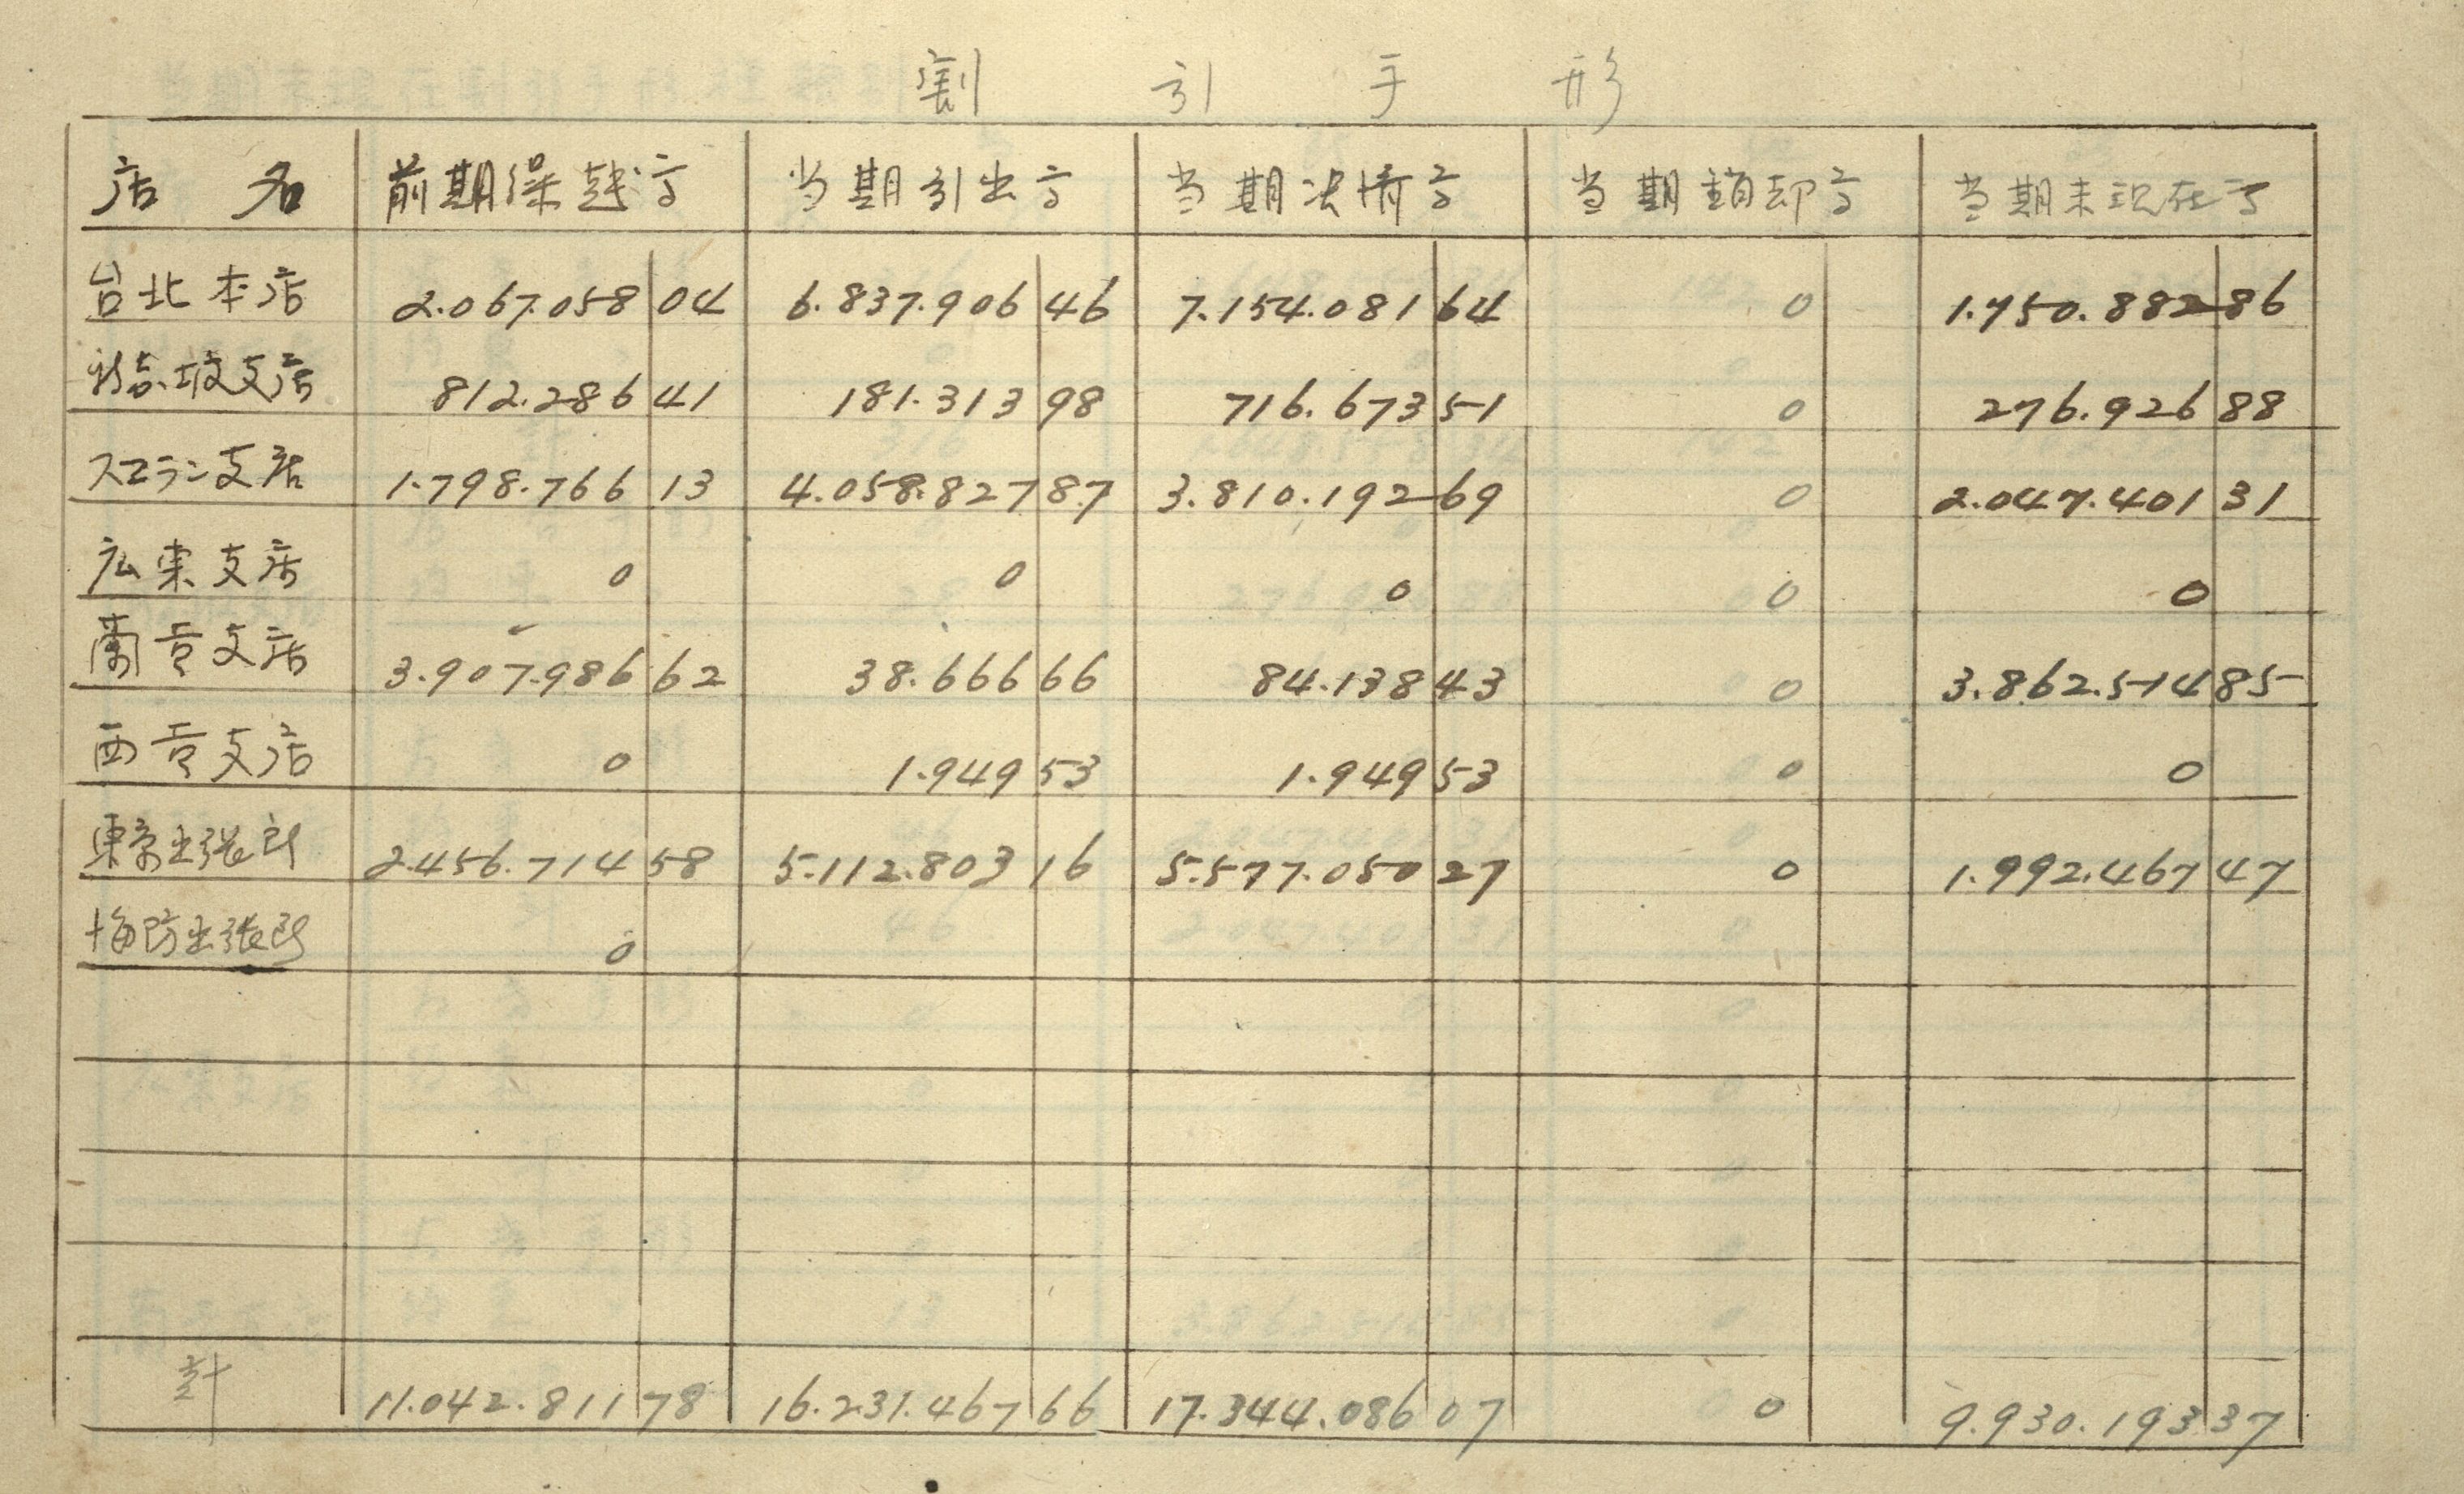 割引手形
店名 前期繰越高 当期引出高 当期決済高 当期銷却高 当期末現在高
台北本店 2.067.058 04 6.837.906 46 7.154.081 64 0 1.750.882 86
新嘉坡支店 812.286 41 181.313 98 716.673 51 0 276.926 88
スマラン支店 1.798.766 13 4.058.827 87 3.810.192 69 0 2.047.401 31
広東支店 0 0 0 0 0
蘭貢支店 3.907.986 62 38.666 66 84.138 43 0 3.862.514 85
西貢支店 0 1.949 53 1.949 53 0 0
東京出張所 2.456.714 58 5.112.803 16 5.577.050 27 0 1.992.467 47
海防出張所 0
計 11.042.811 78 16.231.467 66 17.344.086 07 0 9.930.193 37